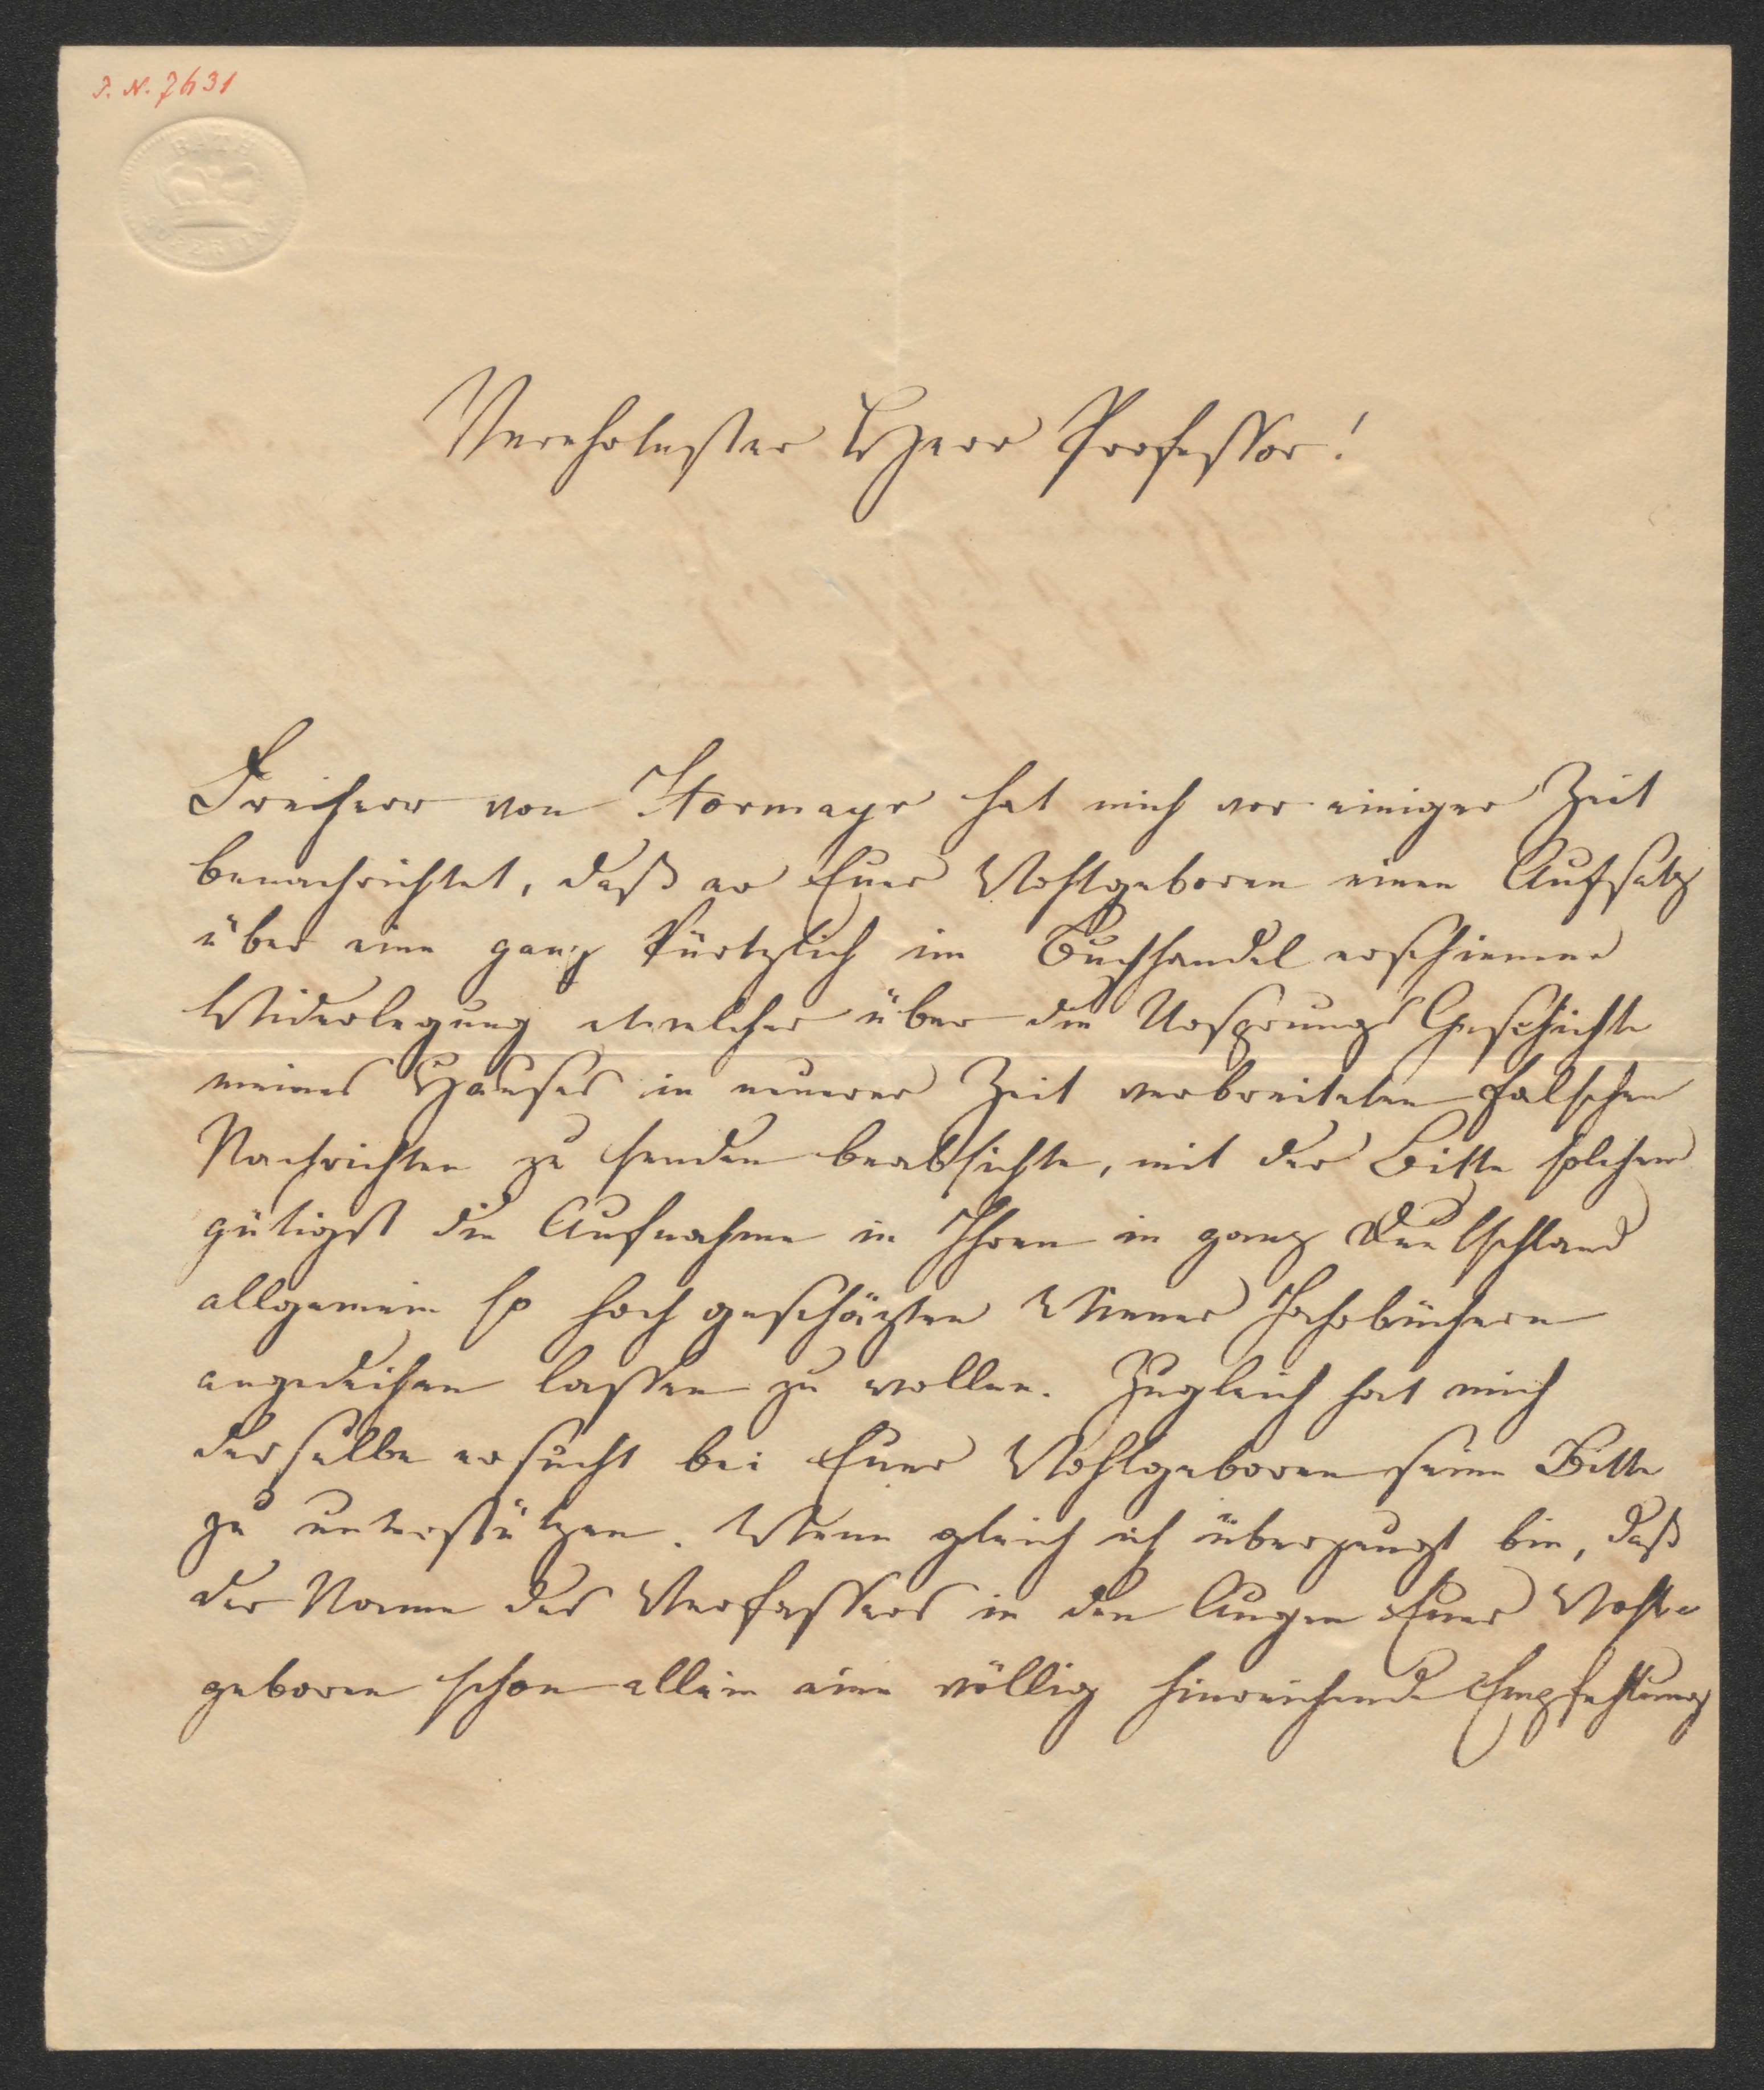 I. N. 7631
BATH
SUPERFINE
Verehrtester Herr Professor!
Freiherr von Hormayr hat mich vor einiger Zeit
benachrichtet, daß er Euer Wohlgeboren einen Aufsatz
über eine ganz kürtzlich im Buchhandel erschienene
Widerlegung etwelcher über die Ursprungs Geschichte
meines Hauses in neuerer Zeit verbreiteten falschen
Nachrichten zu senden beabsichte, mit der Bitte solchem
gütigst die Aufnahme in Ihren in ganz Deutschland
allgemein so hoch geschäzten Wiener Jahrbüchern
angedeihen lassen zu wollen. Zugleich hat mich
derselbe ersucht bei Euer Wohlgeboren seine Bitte
zu unterstützen. Wenn gleich ich überzeugt bin, daß
der Name des Verfassers in den Augen Euer Wohl-
geboren schon allein eine völlig hinreichende Empfehlung